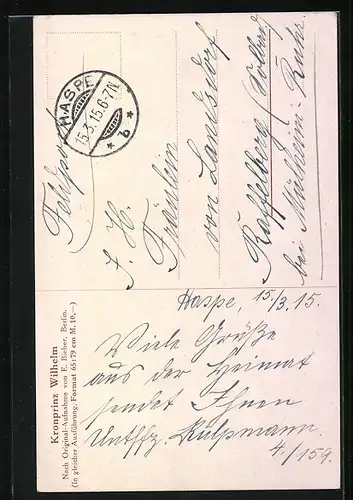 HASPE
15.3.15.6-7N
* b *
Feldpost
I. H.
Fräulein
von Landsdorf
Raffelberg (Solbad
bei Mülheim-Ruhr.
Kronprinz Wilhelm
Nach Original-Aufnahme von E. Bieber, Berlin.
(In gleicher Ausführung. Format 65:79 cm M. 10,—)
Haspe, 15./3.15.
Viele Grüße
aus der Heimat
sendet Ihnen
Untffz. Kulpmann
4./159.